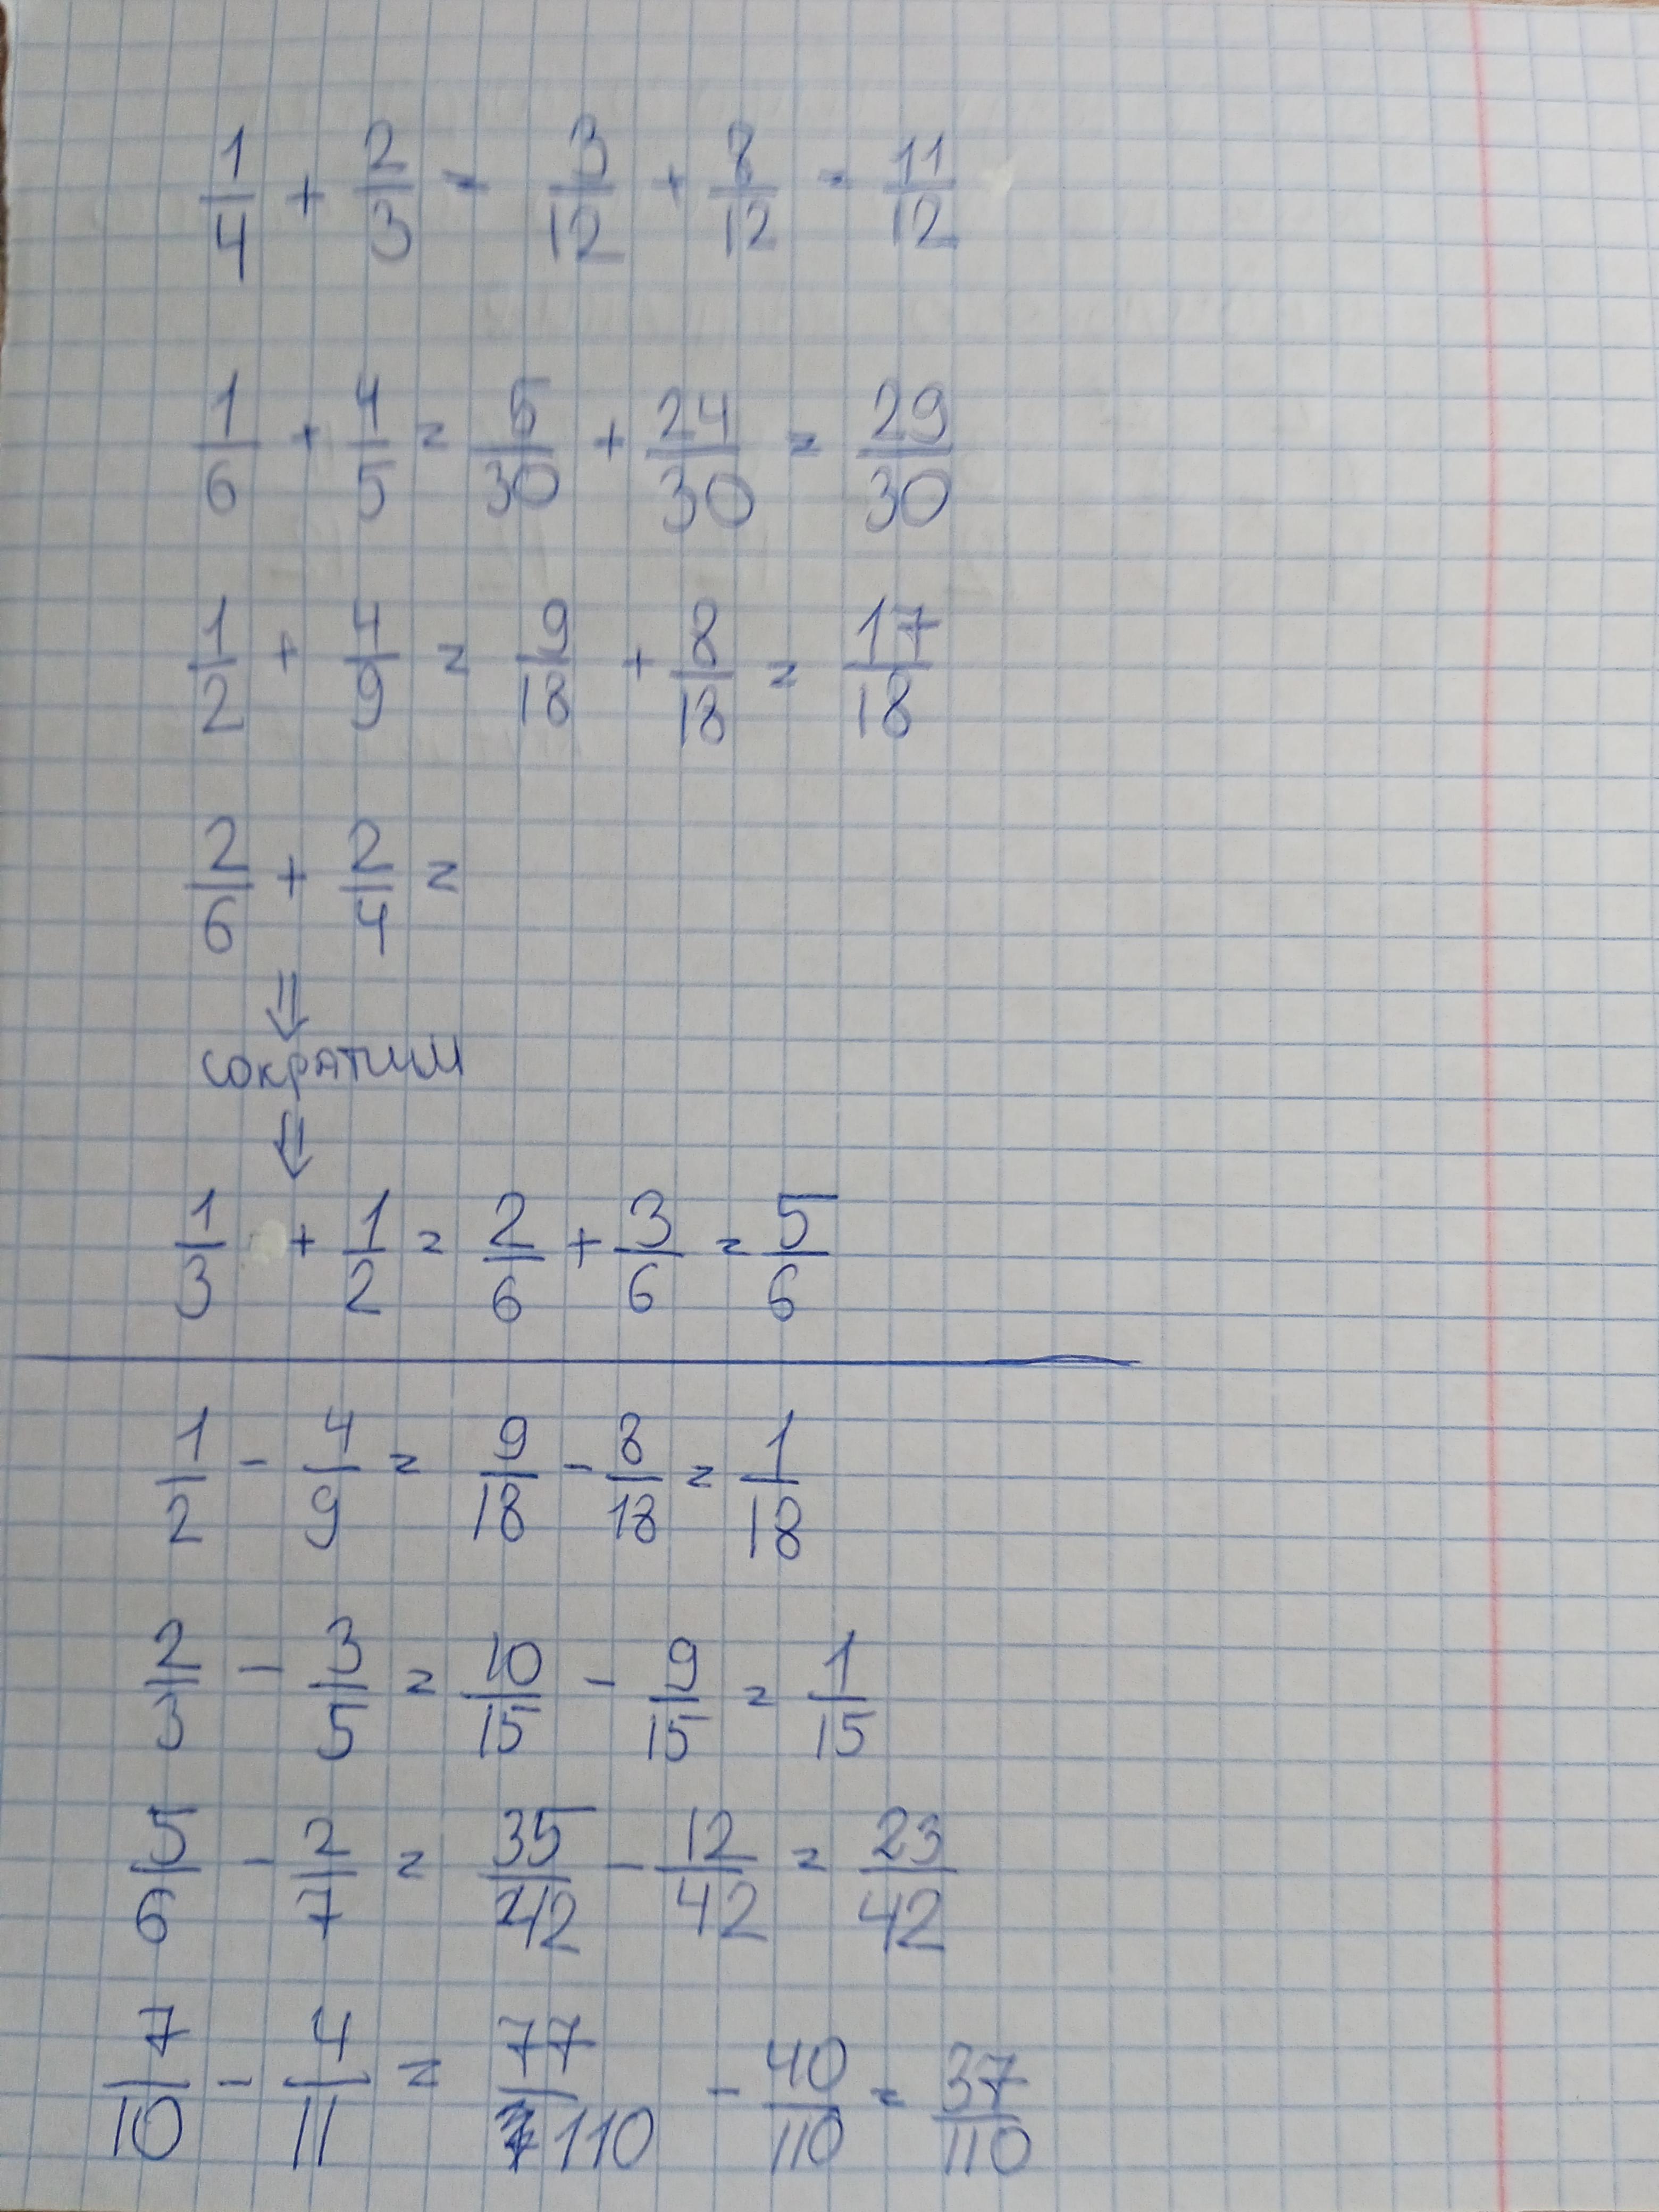 1/4 + 2/3 = 3/12 + 8/12 = 11/12
1/6 + 4/5 = 5/30 + 24/30 = 29/30
1/2 + 4/9 = 9/18 + 8/18 = 17/18
2/6 + 2/4 =
⇓
сократим
⇓
1/3 + 1/2 = 2/6 + 3/6 = 5/6
1/2 - 4/9 = 9/18 - 8/18 = 1/18
2/3 - 3/5 = 10/15 - 9/15 = 1/15
5/6 - 2/7 = 35/42 - 12/42 = 23/42
7/10 - 4/11 = 77/110 - 40/110 = 37/110